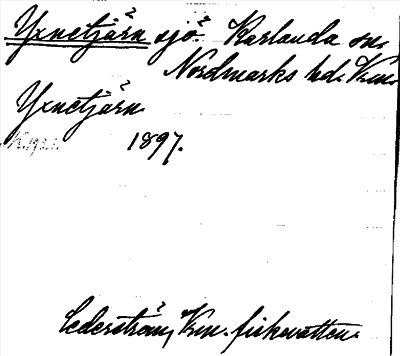 Yxnetjärn sjö. Karlanda sn.
Nordmarks hd. Krm.
Yxnetjärn
1897.
Cederström, Krm. fiskevatten.